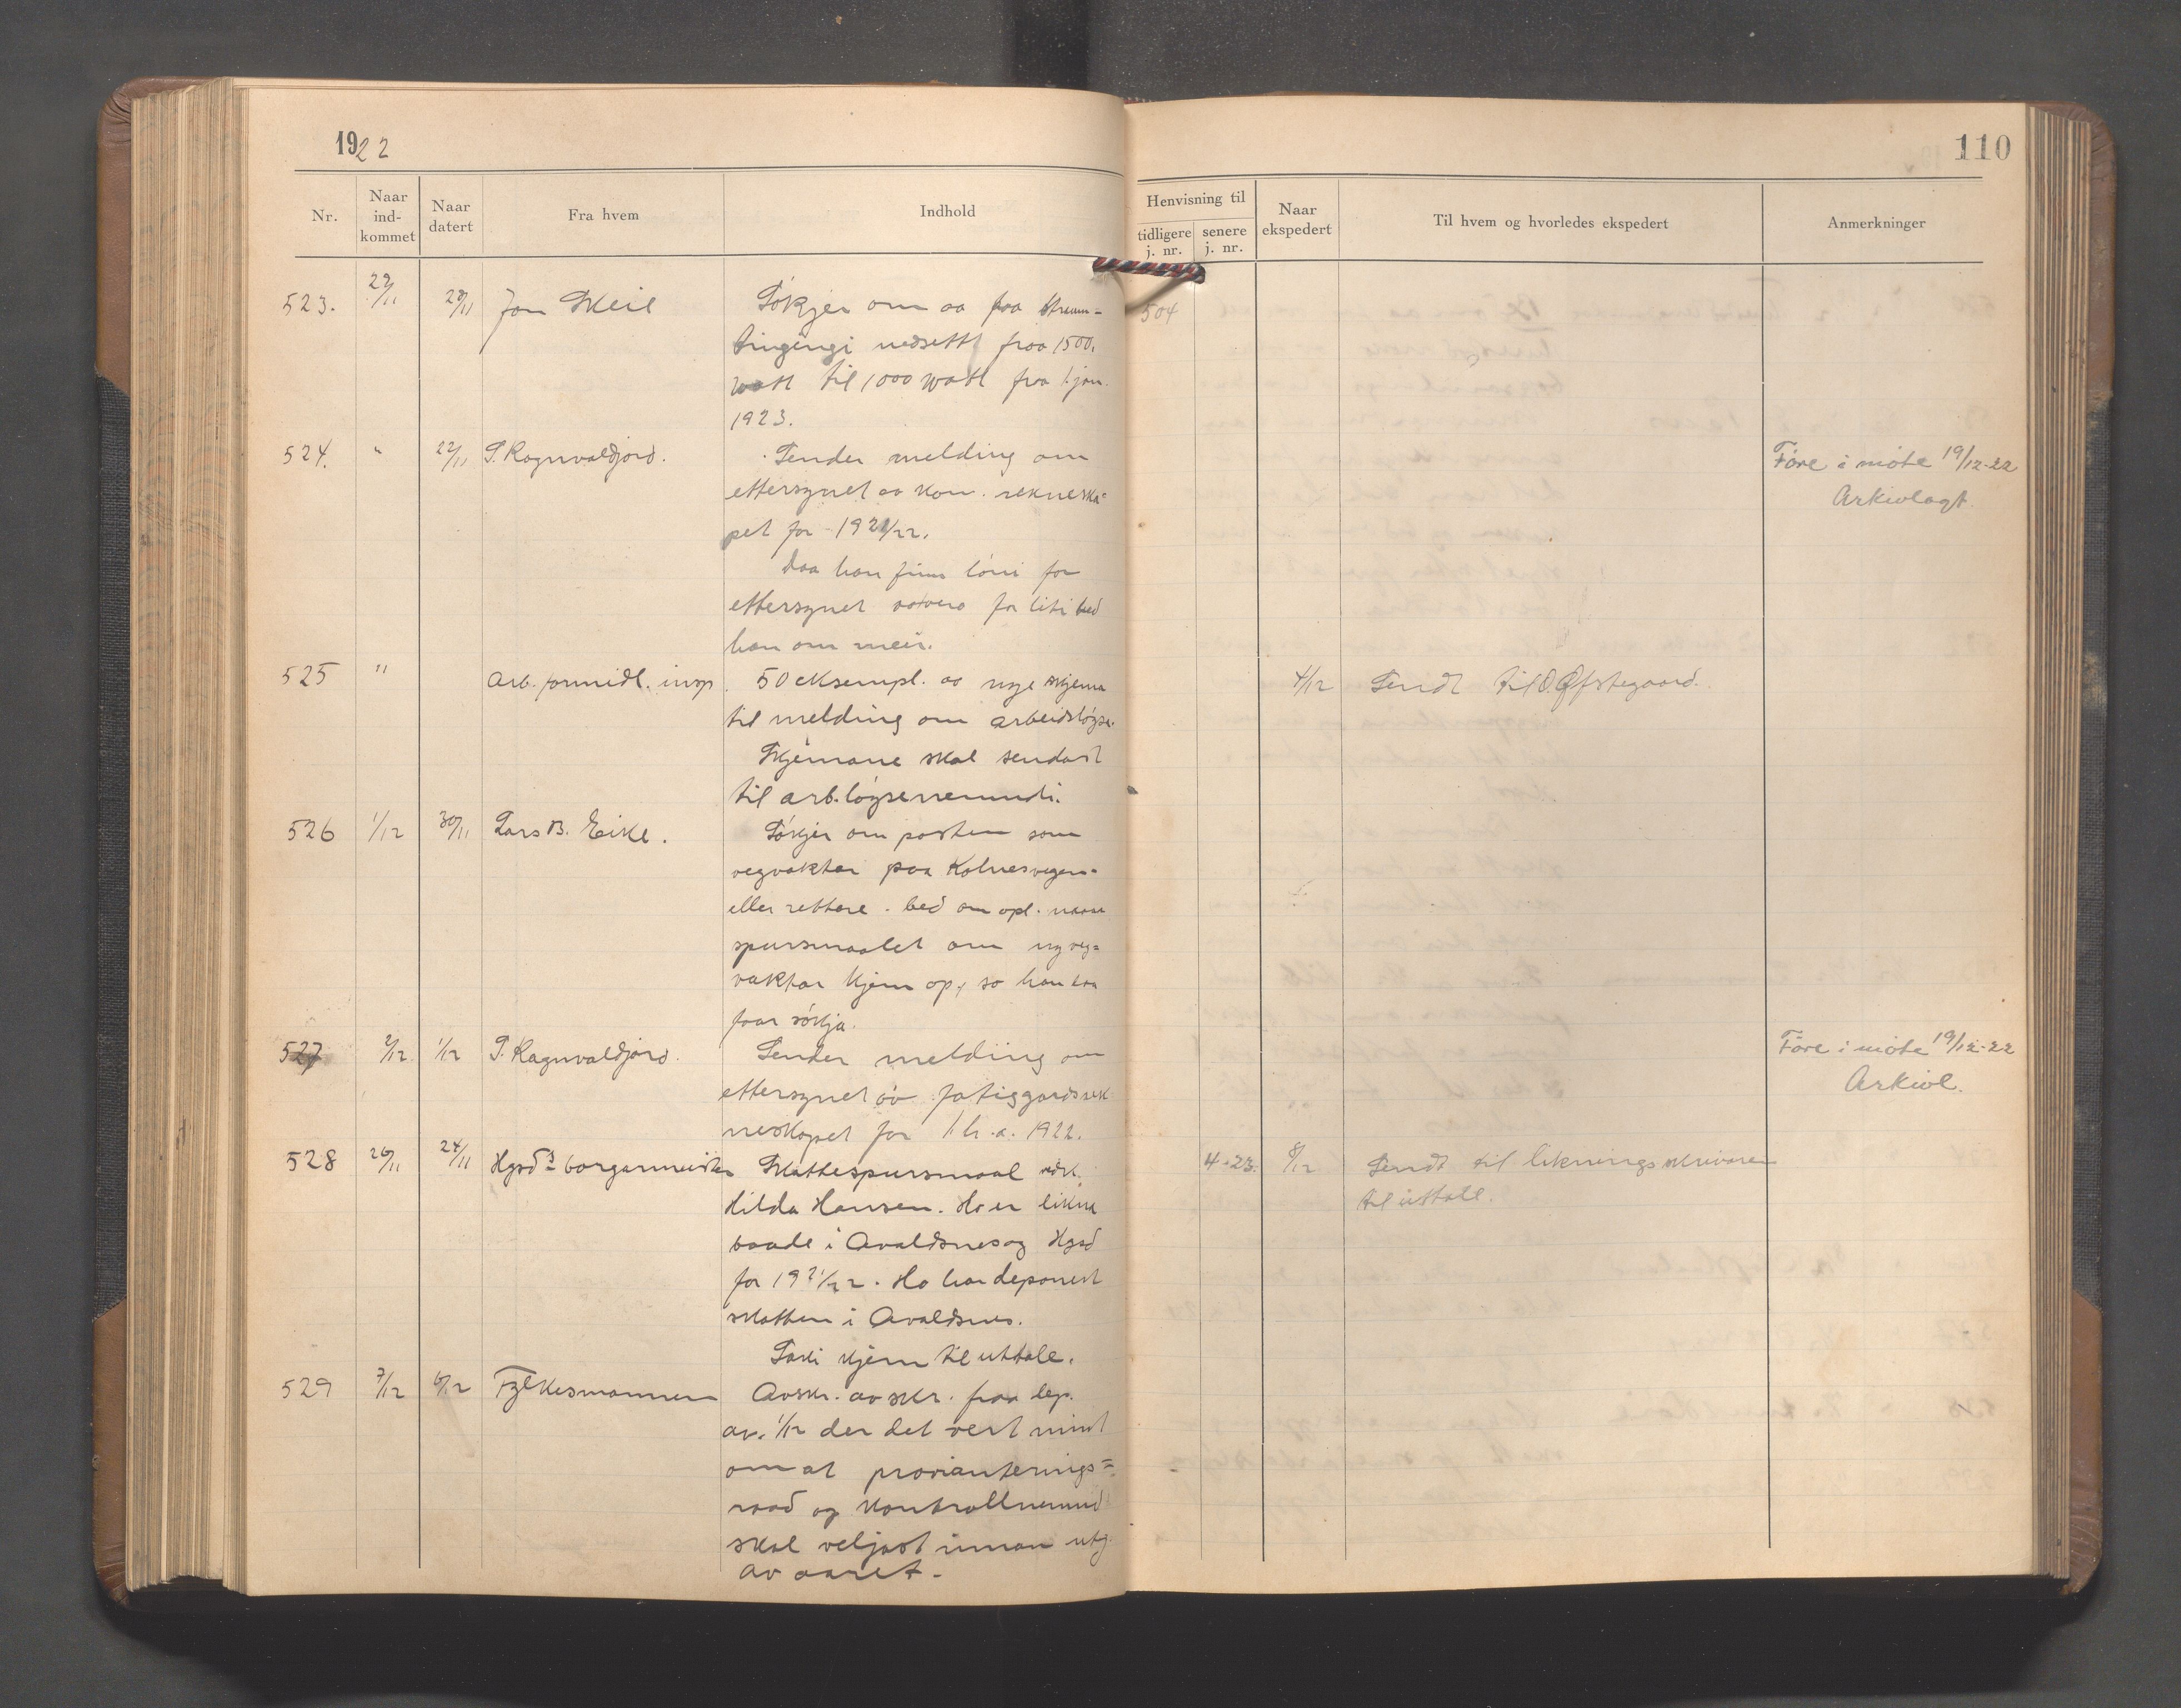 1922
110
Nr.
Naar ind-kommet
Naar datert
Fra hvem
Indhold
Henvisning til
tidligere j. nr.
senere j. nr.
Naar ekspedert
Til hvem og hvorledes ekspedert
Anmerkninger
523. 29/11 28/11 Jon Skeie Søkjer om aa faa straum- 504
tingingi nedsett fraa 1500.
watt til 1000 watt fraa 1. jan.
1923.
524. " 22/11 T. Ragnvaldjord. Sender melding om Føre i møte 19/12-22
ettersynet av kom. rekneska- Arkivlagt
pet for 1921/22.
Daa han finn løni for
ettersynet for liti bed
han om meir.
525 " Arb. formidl. insp. 50 eksempl. av nye skjema 4/12 Sendt til O. Øfstegaard.
til melding om arbeidsløyse.
Skjemane skal sendast
til arb.løysenemndi.
526 1/12 30/11 Lars B. Eike. Søkjer om posten som
vegvaktar paa Kolnesvegen-
eller rettare. bed om opl. naar
spursmaalet om ny veg=
vaktar kjem op, so han daa
faar søkja.
527 2/12 1/12 T. Ragnvaldjord. Sender melding om Føre i møte 19/12-22
ettersynet av fatiggardsrek Arkivl.
neskapet for 1. h. a. 1922.
528 26/11 24/11 Hgsds borgarmeister Skattespursmaal vedk. 4-23. 8/12 Sendt til likningsskrivaren
Hilda Hansen. Ho er likna til uttale.
baade i Avaldsnes og Hgsd
for 1921/22. Ho har deponert
skatten i Avaldsnes.
Saki kjem til uttale.
529 7/12 6/12 Fylkesmannen Avskr. av skr. fraa dep.
av. 1/12 der det vert mint
om at provianterings=
raad og kontrollnemnd
skal veljast innan utg.
av aaret.